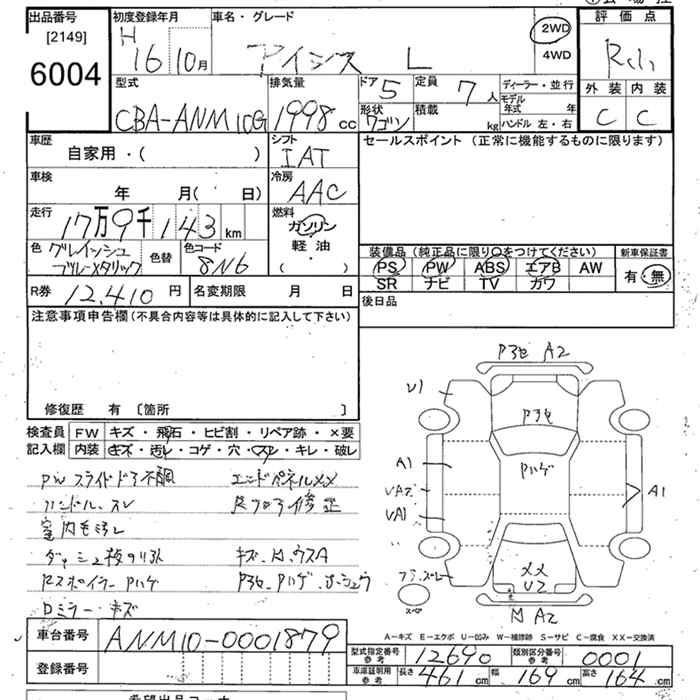 出品番号
[2149]
6004
初度登録年月
H
16 10月
車名・グレード
アイシス L
2WD
4WD
評価点
外装 内装
C C
型式
CBA-ANM10G
排気量
1998 cc
ドア 5
定員 7 人
形状
ワゴン
積載
kg
ディーラー・並行
モデル年式 年
ハンドル 左・右
車歴
自家用・( )
シフト
IAT
セールスポイント (正常に機能するものに限ります)
車検
年 月( 日)
冷房
AAC
走行
17万9千143km
燃料
ガソリン
軽油
( )
色
グレイッシュ
ブルーメタリック
色替
色コード
8N6
装備品(純正品に限り○をつけてください)
PS PW ABS エアB AW
SR ナビ TV カワ
新車保証書
有・無
R券 12,410 円
名変期限 月 日
後日品
注意事項申告欄(不具合内容等は具体的に記入して下さい)
修復歴 有 〔箇所 〕
検査員 FW キズ・飛石・ヒビ割・リペア跡・×要
記入欄 内装 キズ・汚レ・コゲ・穴・スレ・キレ・破レ
PWスライドドア不調
エンドパネルXX
ハンドル、スレ
Rフロア修正
室内モヨゴレ
リスポイラーPハゲ
ロミラーキズ
A2
U1
Pハゲ
A1
A1
UA2
UA1
XX
U2
A2
A-キズ E-エクボ U-凹み W-補修跡 S-サビ C-腐食 XX-交換済
車台番号 ANM10-0001879
登録番号
型式指定番号
参考
12690
類別区分番号
参考
0001
車庫証明用
参考
長さ 461 cm 幅 169 cm 高さ 164 cm